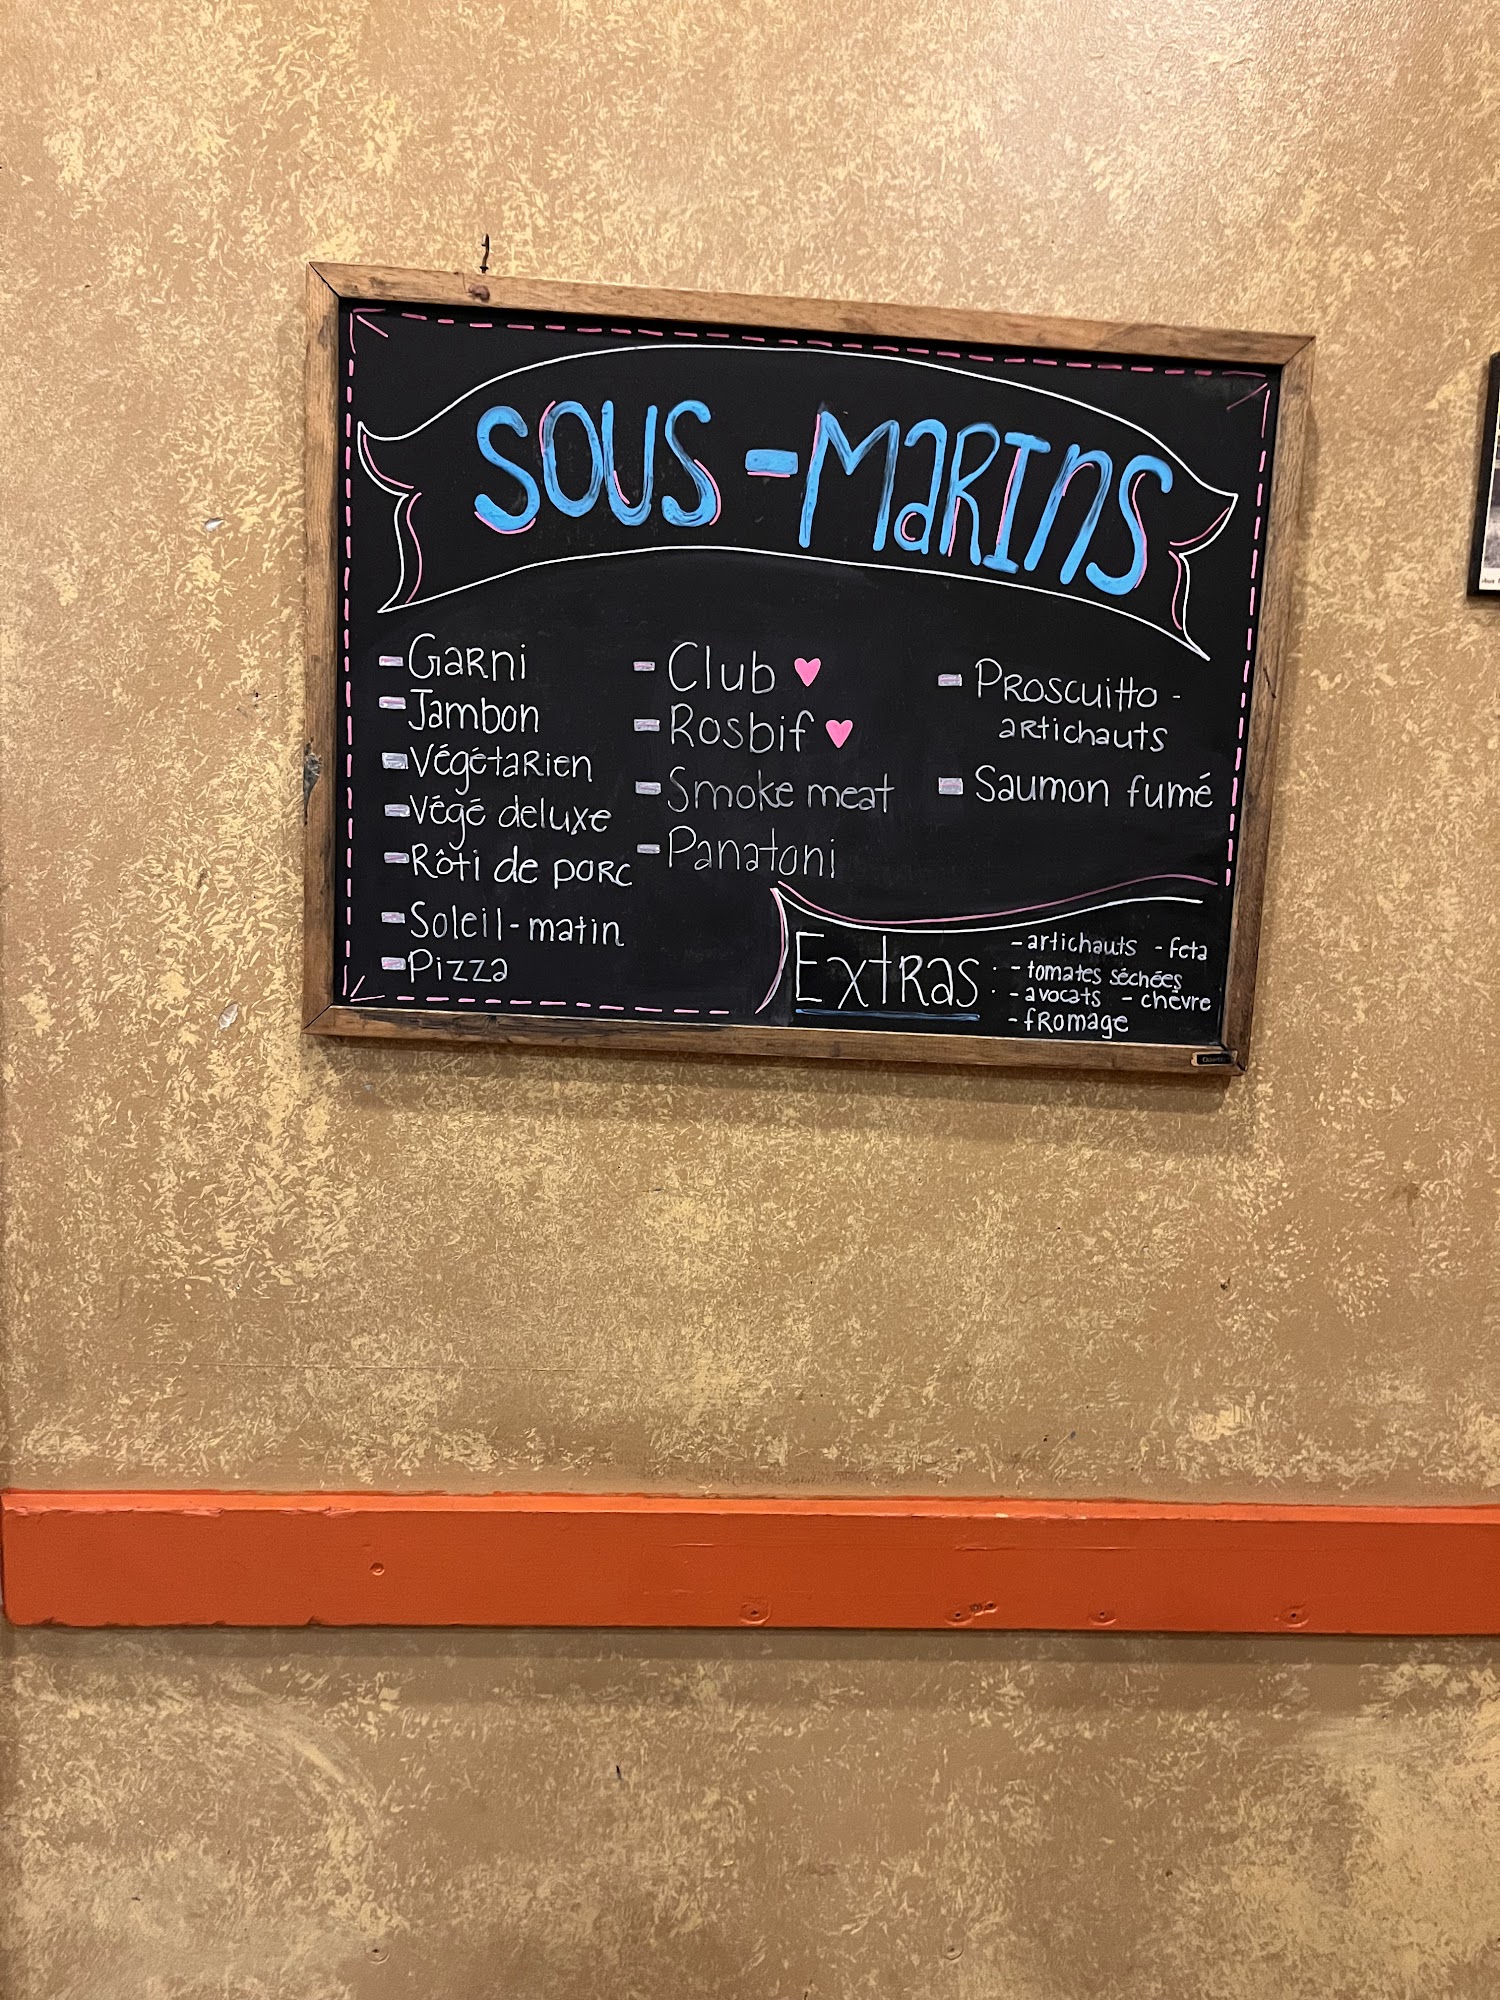 SOUS-MARINS
- Garni
- Jambon
- Végétarien
- Végé deluxe
- Rôti de porc
- Soleil-matin
- Pizza
- Club ♥
- Rosbif ♥
- Smoke meat
- Panatoni
- Proscuitto -
artichauts
- Saumon fumé
Extras :
- artichauts - feta
- tomates séchées
- avocats - chèvre
- fromage